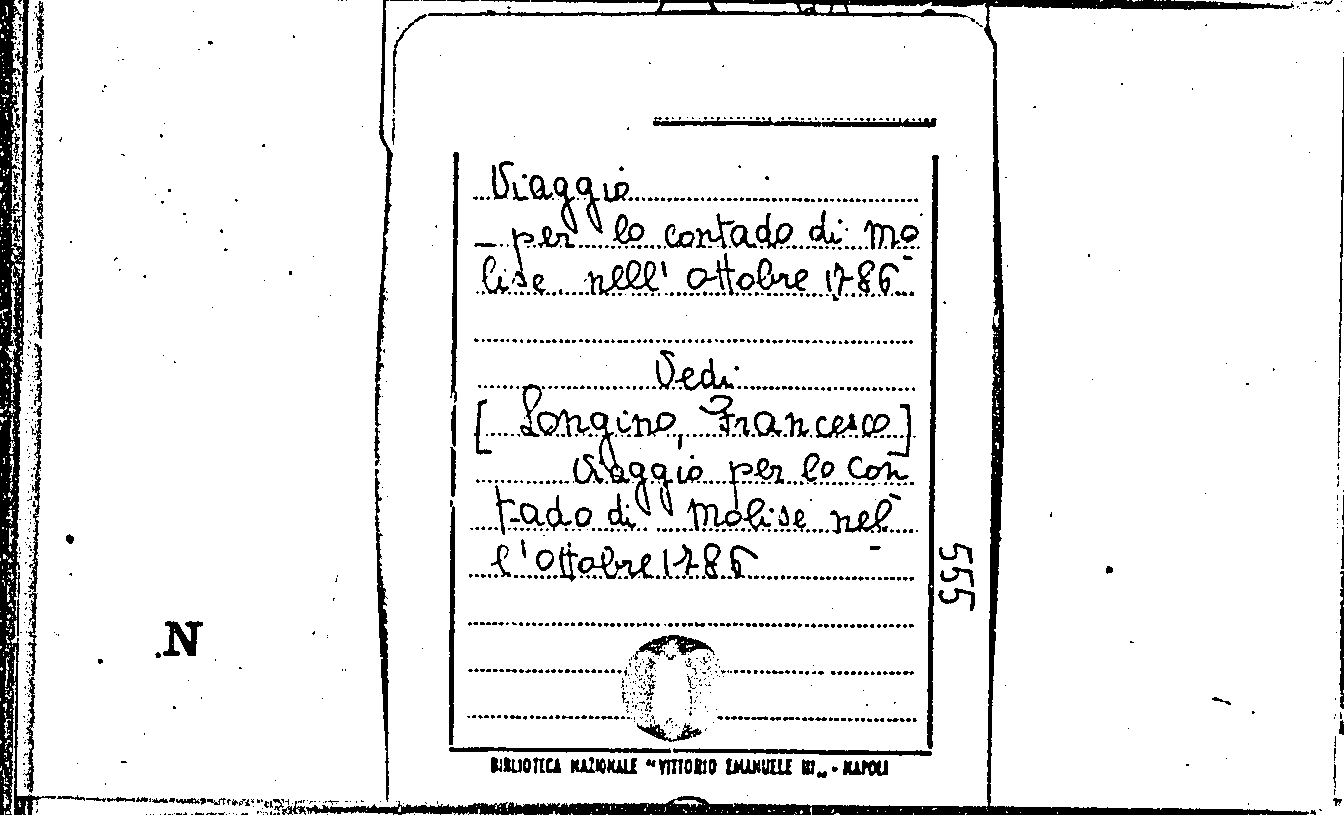 Viaggio
- per lo contado di mo
lise nell' ottobre 1786
Vedi
[Longino, Francesco]
Viaggio per lo con
tado di Molise nel
l'ottobre 1786
555
.N
BIBLIOTECA NAZIONALE "VITTORIO EMANUELE III" - NAPOLI